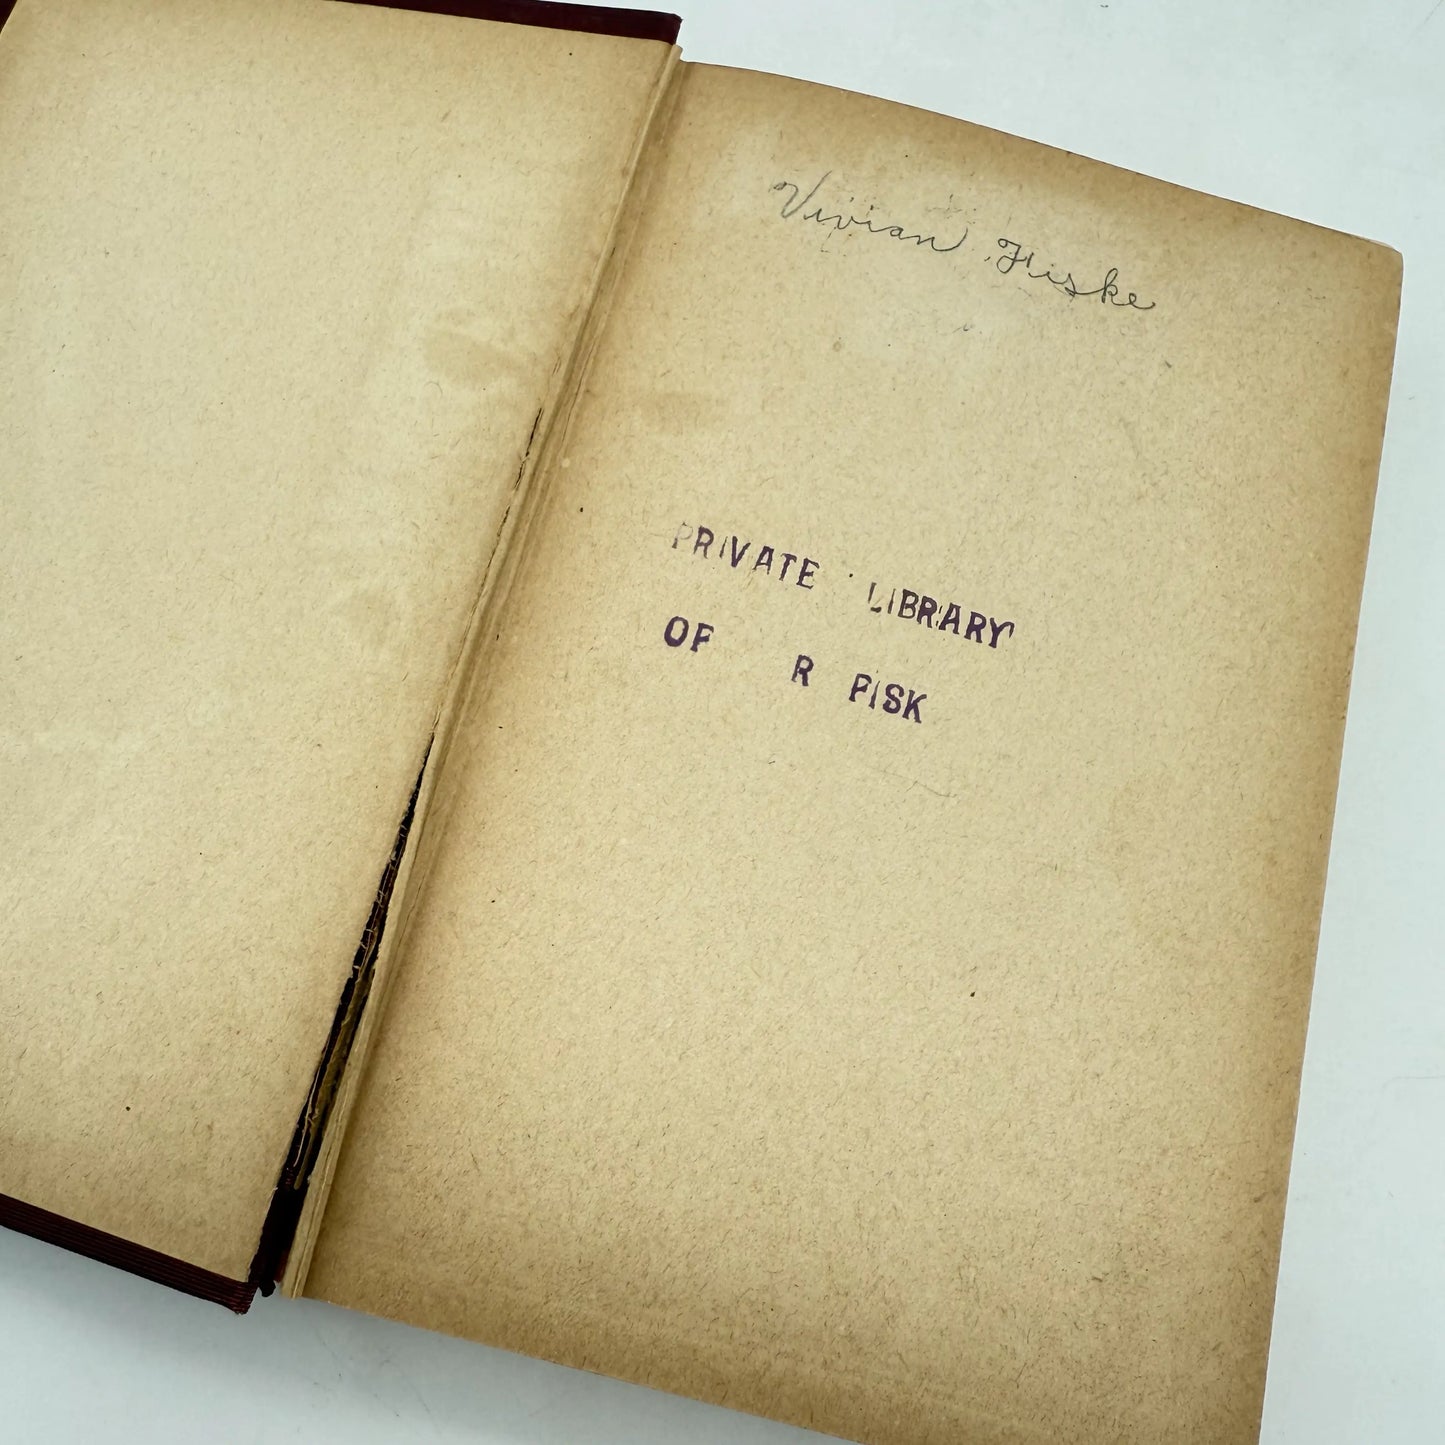 Vivian Fiske
PRIVATE LIBRARY
OF R FISK